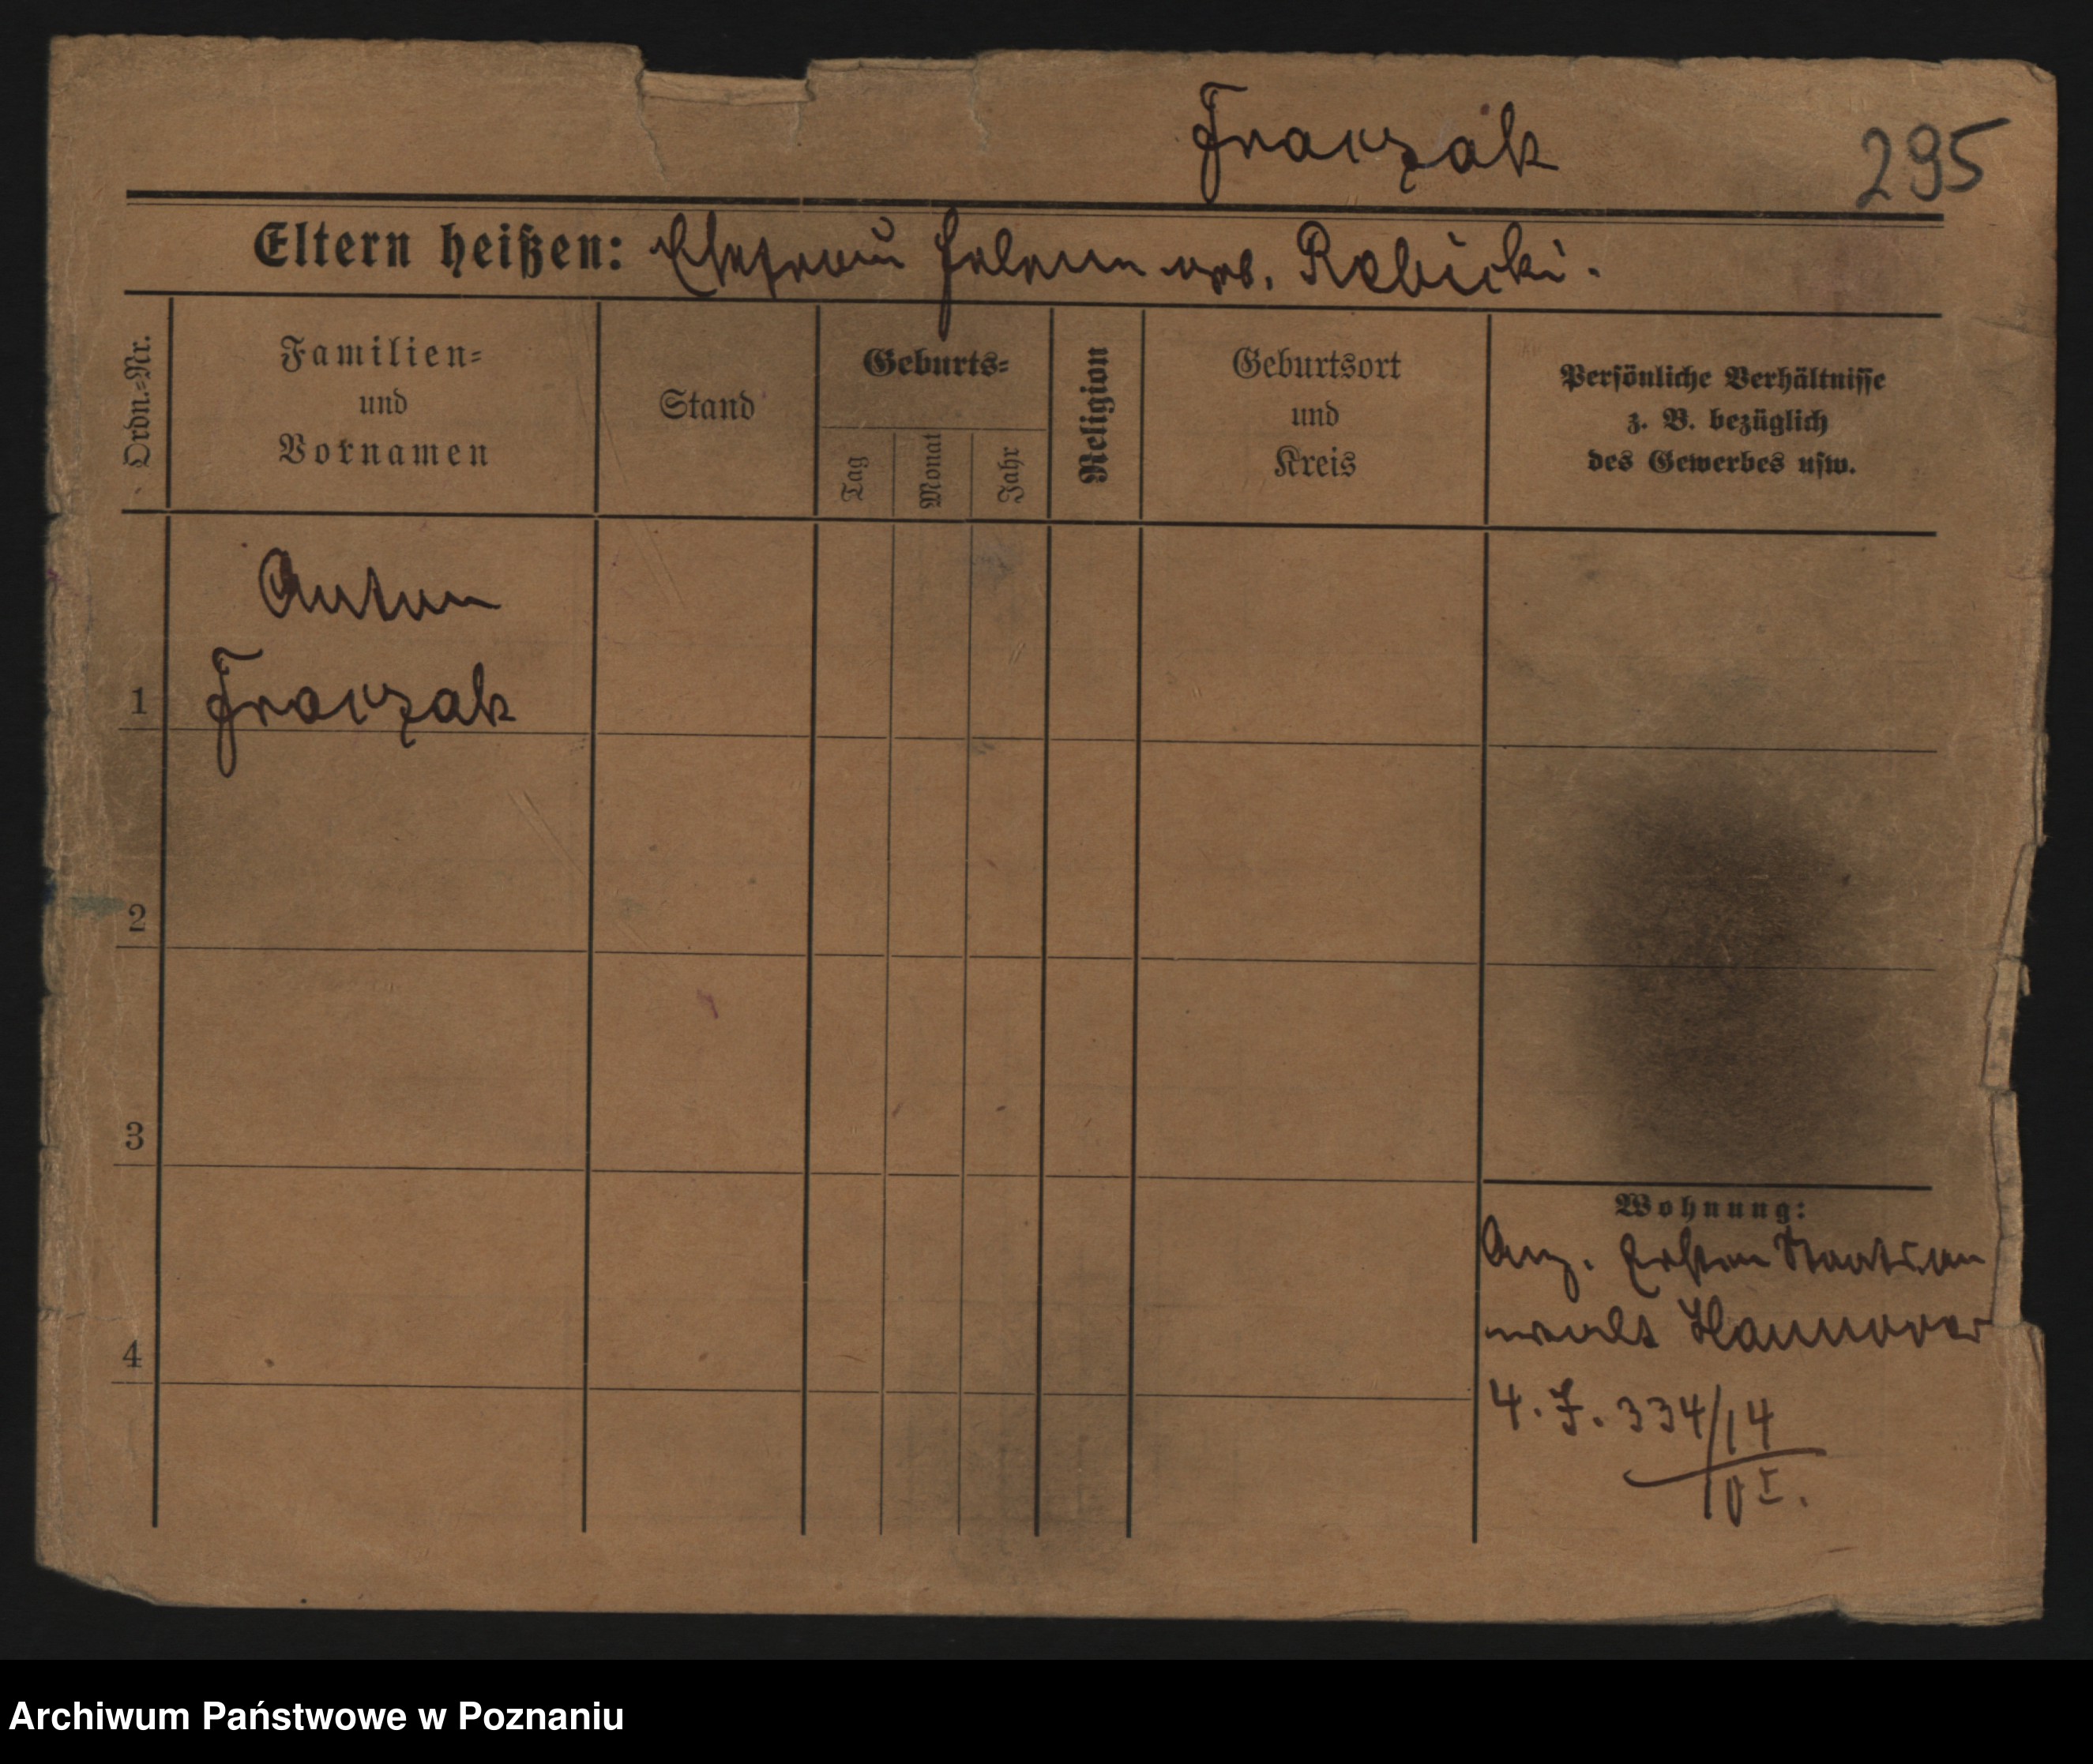 Fraczak
295
Eltern heißen: Ehefrau Helene geb. Rebicki.
Ordn.=Nr.
Familien=
und
Vornamen
Stand
Geburts=
Tag
Monat
Jahr
Religion
Geburtsort
und
Kreis
Persönliche Verhältnisse
z. B. bezüglich
des Gewerbes usw.
Anton
1 Fraczak
2
3
Wohnung:
Anz. Ersten Staatsan
walts Hannover
4
4. J. 334/14